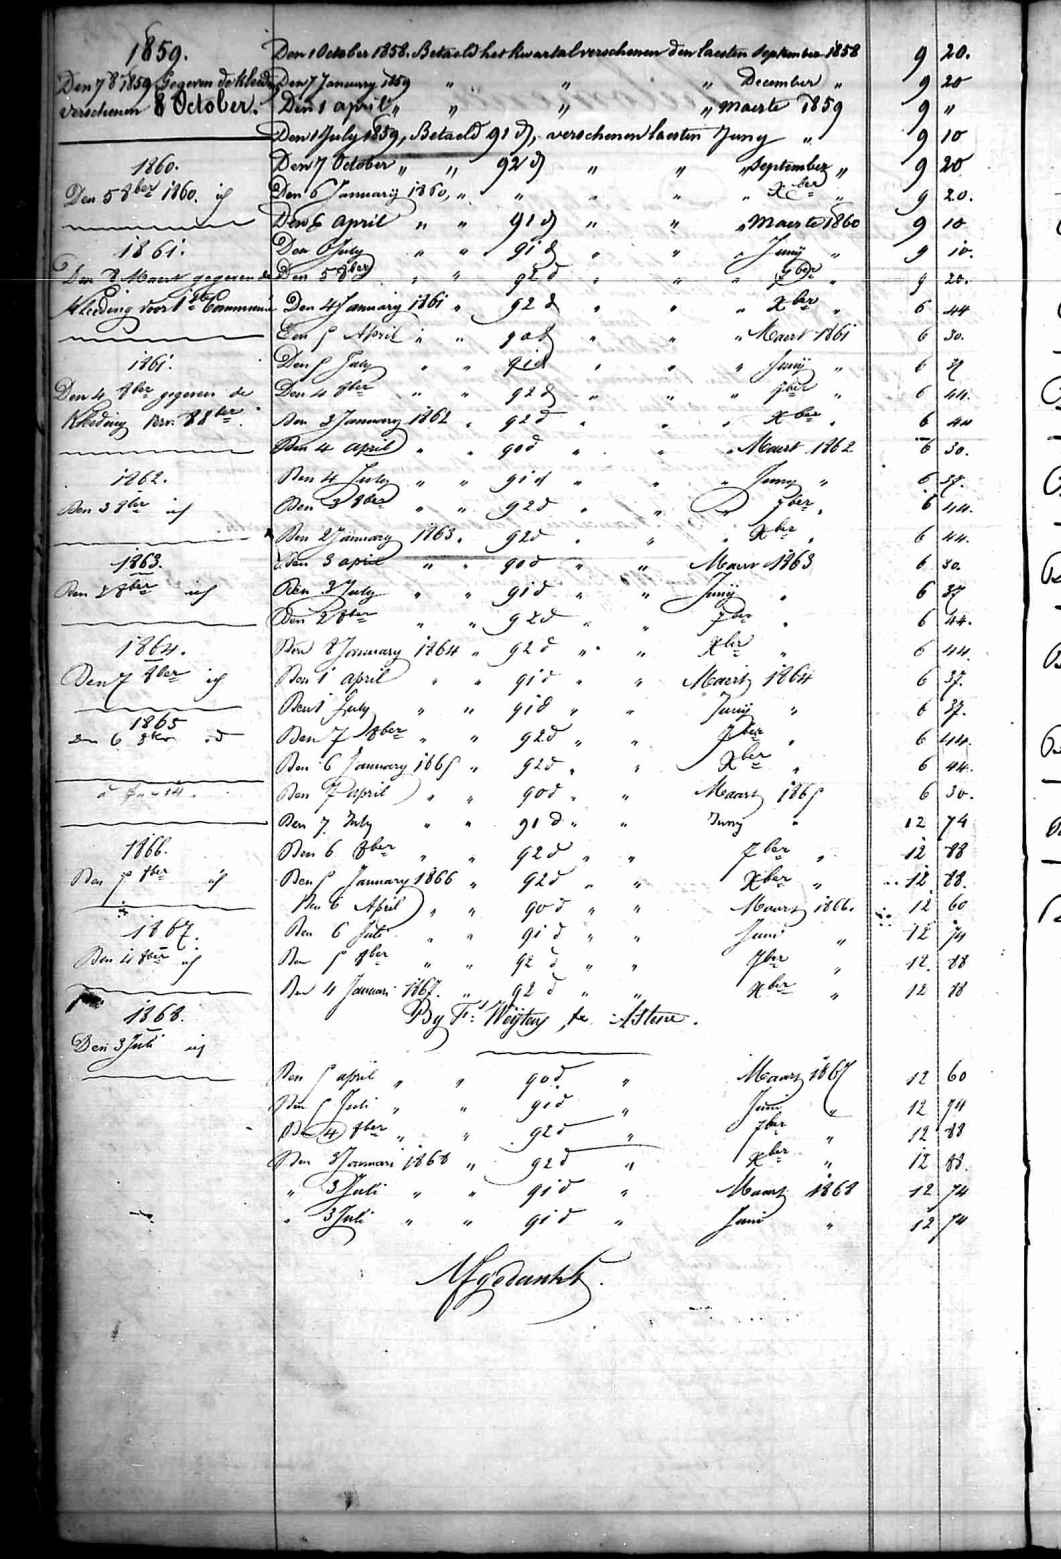 1859. Den 1 October 1858. Betaeld het kwartal verschenen den laesten September 1858 9 20.
Den 7 8 1859 Gegeven de kleeding Den 7 January 1859 " " " December " 9 20
verschenen 8 October. Den 1 april " " " " maerte 1859 9 "
Den 1 July 1859, Betaeld 91 d, verschenen laesten Juny " 9 10
1860. Den 7 October " " 92 d " " " September " 9 20
Den 5 8ber 1860. id Den 6 January 1860, " " " " " Xber " 9 20.
Den 6 april " " 91 d " " " Maerte 1860 9 10
1861. Den 6 July " " 91 d " " Juny " 9 10.
Den 8 Maert gegeven de Den 5 8ber " " 92 d " " " 7ber " 9 20.
kleeding voor 1e Communie Den 4 January 1861 " 92 d " " " Xber " 6 44
Den 5 April " " 90 d " " " Maert 1861 6 30.
1861. Den 5 July " " 91 d " " " Juny " 6 37
Den 4 8ber gegeven de Den 4 8ber " " 92 d " " " 7ber " 6 44.
Kleeding 8ber. Den 3 January 1862 " 92 d " " " Xber " 6 44
Den 4 april " " 90 d " " " Maert 1862 6 30.
1862. Den 4 July " " 91 d " " " Juny " 6 37.
Den 3 8ber id Den 3 8ber " " 92 d " " " 7ber " 6 44.
Den 2 January 1863. " 92 d " " " Xber " 6 44.
1863. Den 3 april " " 90 d " " Maert 1863 6 30.
Den 2 8ber id Den 3 July " " 91 d " " Juny " 6 37
Den 2 8ber " " 92 d " " 7ber " 6 44.
1864. Den 8 January 1864 " 92 d " " Xber " 6 44.
Den 7 8ber id Den 1 april " " 91 d " " Maert 1864 6 37.
Den 1 July " " 91 d " " Juny " 6 37.
1865 Den 7 8ber " " 92 d " " 7ber " 6 44
Den 6 8ber id Den 6 January 1865 " 92 d " " Xber " 6 44.
Den 7 april " " 90 d " " Maart 1865 6 30.
Den 7 July " " 91 d " " Juny " 12 74
1866. Den 6 8ber " " 92 d " " 7ber " 12 88
Den 5 8ber id Den 5 January 1866 " 92 d " " Xber " 12 88.
Den 6 April " " 90 d " " Maart 1866. 12 60
1867. Den 6 Juli " " 91 d " " Juni " 12 74
Den 4 8ber id Den 5 8ber " " 92 d " " 7ber " 12 88
Den 4 Januari 1867. " 92 d " " Xber " 12 88
1868. By Fs Weytens, te Astene.
Den 3 Juli id
Den 5 april " " 90 d " Maart 1867 12 60
Den 5 Juli " " 91 d " Juni " 12 74
Den 4 8ber " " 92 d " 7ber " 12 88
Den 3 Januari 1868 " 92 d " Xber " 12 88.
" 3 Juli " " 91 d " Maart 1868 12 74
" 3 Juli " " 91 d " Juni " 12 74
Afgedankt.